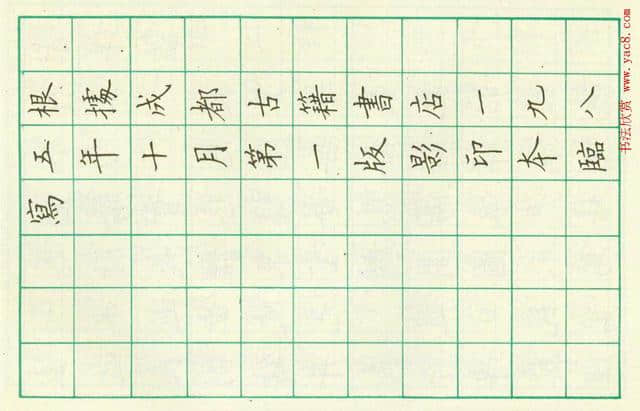 根據成都古籍書店一九八
五年十月第一版影印本臨
寫
书法欣赏 www.yac8.com